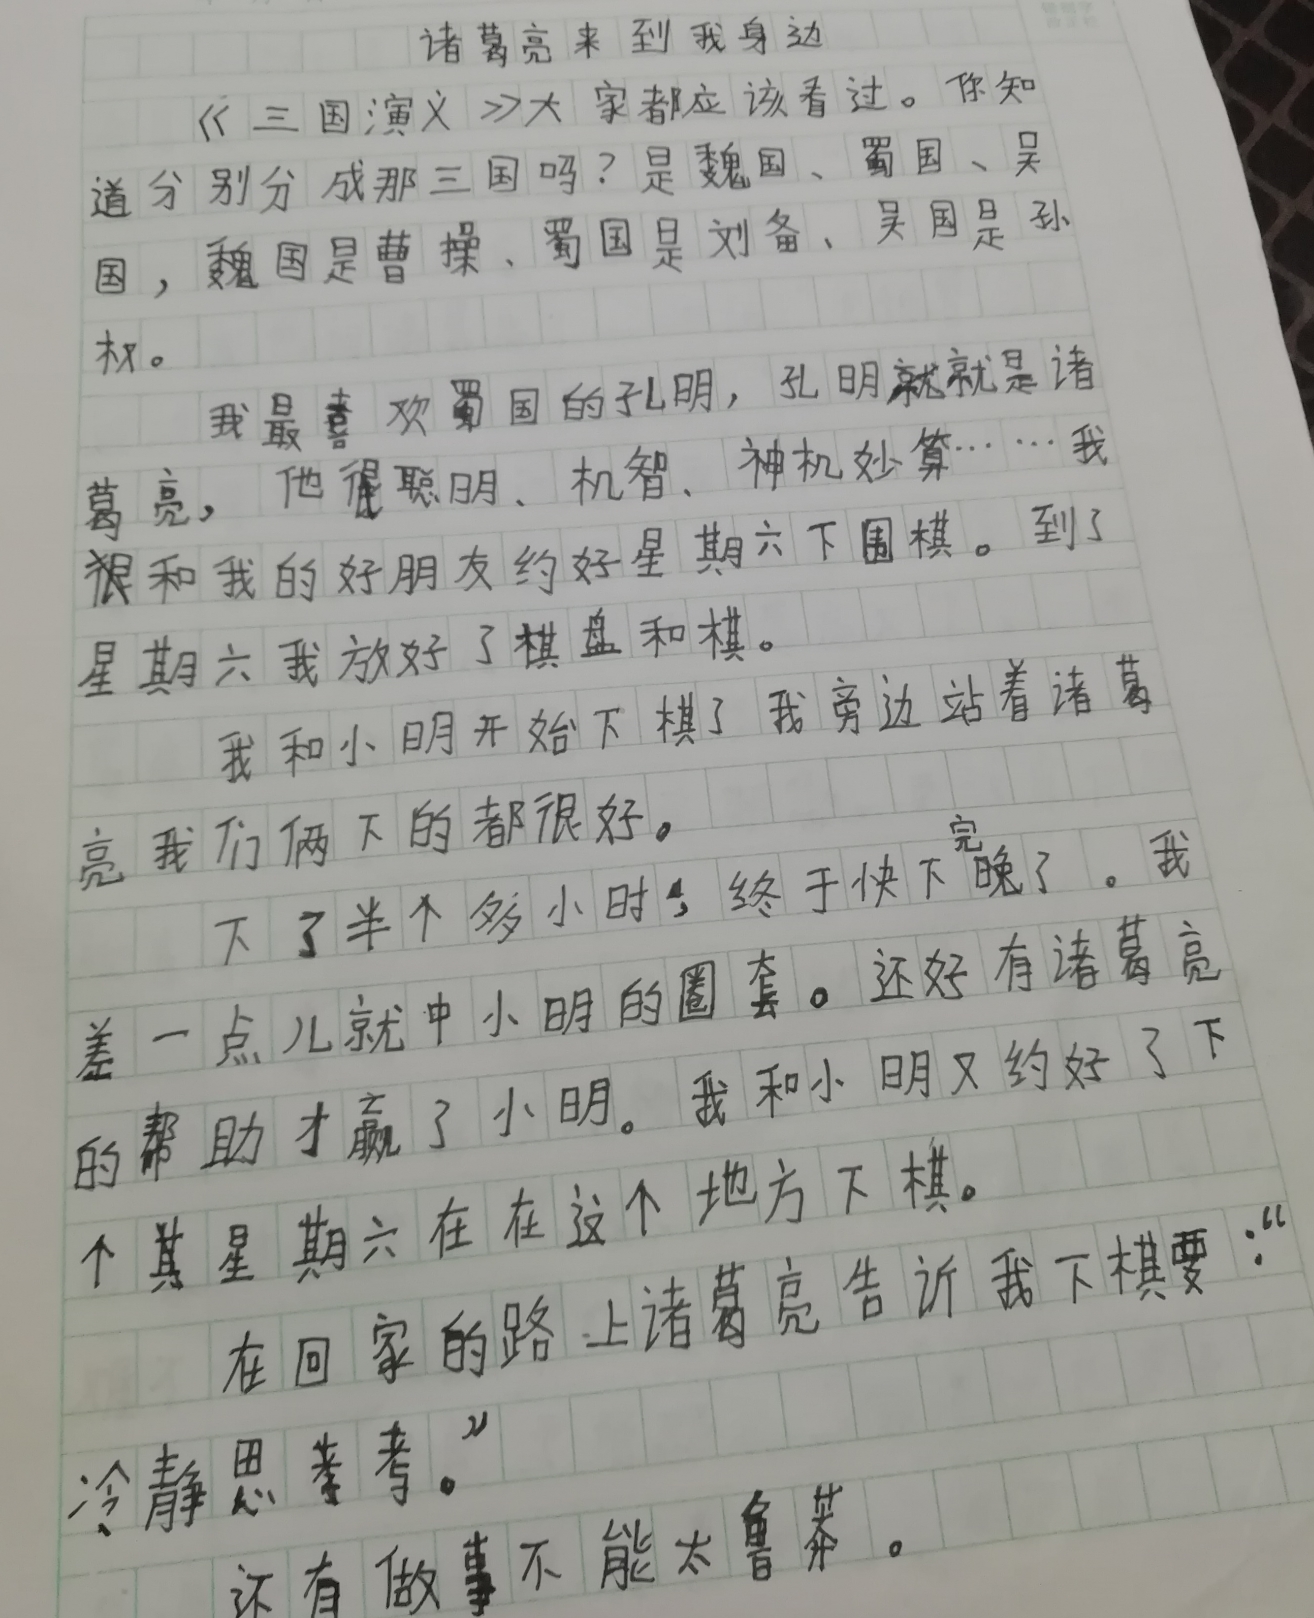 诸葛亮来到我身边
《三国演义》大家都应该看过。你知
道分别分成那三国吗？是魏国、蜀国、吴
国，魏国是曹操、蜀国是刘备、吴国是孙
权。
我最喜欢蜀国的孔明，孔明就就是诸
葛亮，他很聪明、机智、神机妙算……我
很和我的好朋友约好星期六下围棋。到了
星期六我放好了棋盘和棋。
我和小明开始下棋了我旁边站着诸葛
亮我们俩下的都很好。
下了半个多小时，终于快下完晚了。我
差一点儿就中小明的圈套。还好有诸葛亮
的帮助才赢了小明。我和小明又约好了下
个其星期六在在这个地方下棋。
在回家的路上诸葛亮告诉我下棋要：“
冷静思考考。”
还有做事不能太鲁莽。